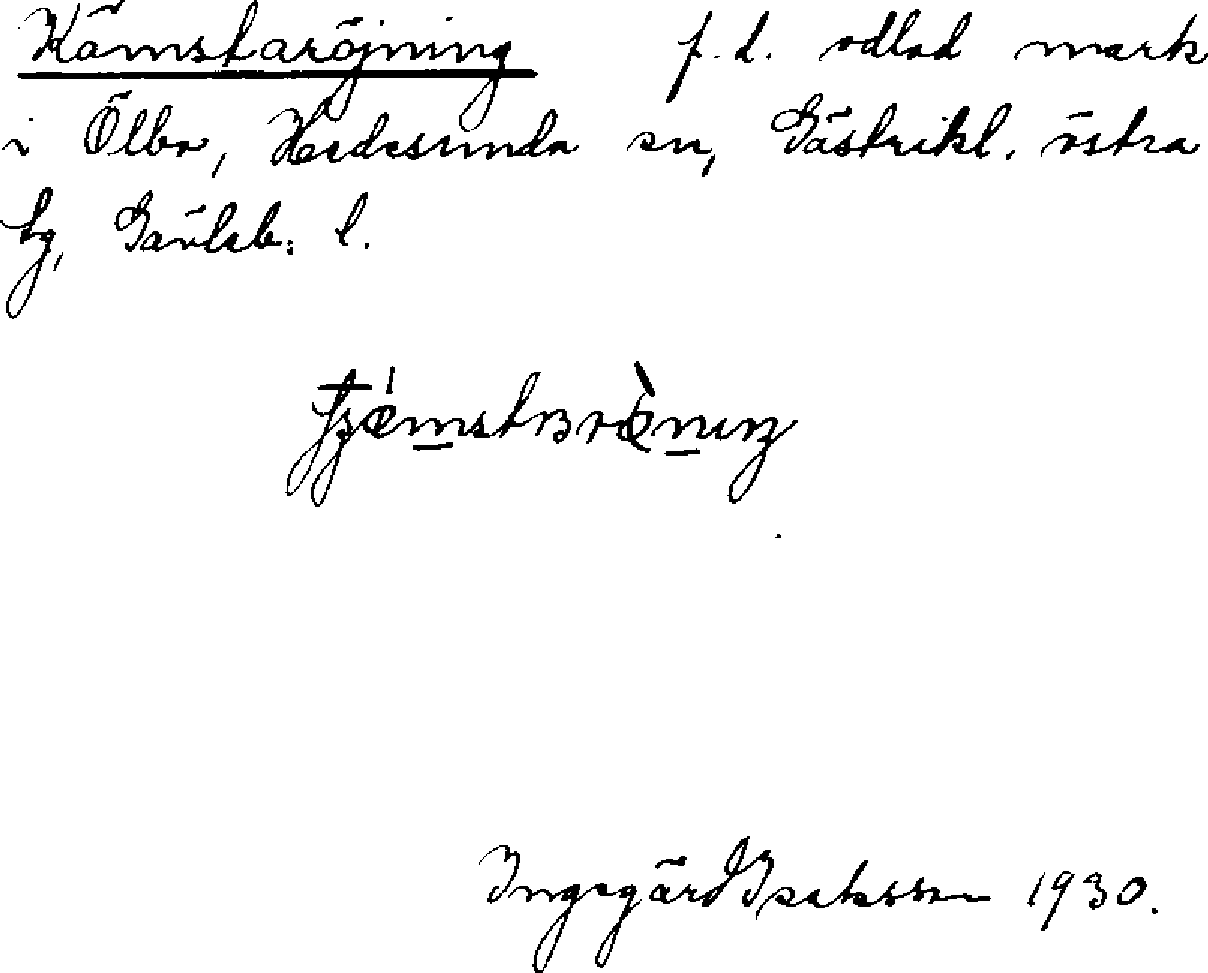 Kämstaröjning f.d. odlad mark
i Ölbo, Hedesunda sn, Gästrikl. östra
hg, Gävleb. l.
Ingegärd Isaksson 1930.